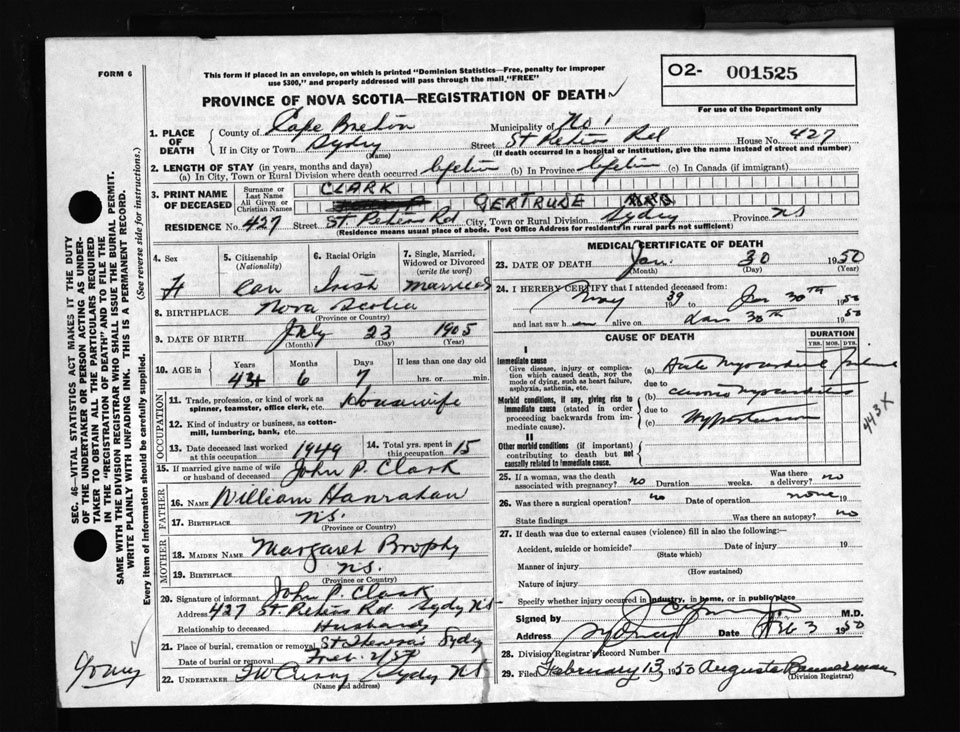 FORM 6
This form if placed in an envelope, on which is printed "Dominion Statistics—Free, penalty for improper
use $300," and properly addressed will pass through the mail "FREE"
O2- 001525
For use of the Department only
PROVINCE OF NOVA SCOTIA—REGISTRATION OF DEATH
1. PLACE OF DEATH
County of Cape Breton Municipality of No 1
If in City or Town Sydney (Name) Street St Peters Rd House No. 427
(If death occurred in a hospital or institution, give the name instead of street and number)
2. LENGTH OF STAY (in years, months and days)
(a) In City, Town or Rural Division where death occurred lifetime (b) In Province lifetime (c) In Canada (if immigrant)
3. PRINT NAME OF DECEASED
Surname or Last Name CLARK
All Given or Christian Names GERTRUDE
RESIDENCE No. 427 Street St Peters Rd City, Town or Rural Division Sydney Province NS
(Residence means usual place of abode. Post Office Address for residents in rural parts not sufficient)
4. Sex F
5. Citizenship (Nationality) Can
6. Racial Origin Irish
7. Single, Married, Widowed or Divorced (write the word) Married
8. BIRTHPLACE Nova Scotia
(Province or Country)
9. DATE OF BIRTH July 23 1905
(Month) (Day) (Year)
10. AGE in Years 44 Months 6 Days 7 If less than one day old hrs. or min.
OCCUPATION
11. Trade, profession, or kind of work as spinner, teamster, office clerk, etc. Housewife
12. Kind of industry or business, as cotton-mill, lumbering, bank, etc.
13. Date deceased last worked at this occupation 1949
14. Total yrs. spent in this occupation 15
15. If married give name of wife or husband of deceased John P. Clark
FATHER
16. NAME William Hanrahan
17. BIRTHPLACE N.S.
(Province or Country)
MOTHER
18. MAIDEN NAME Margaret Brophy
19. BIRTHPLACE N.S.
(Province or Country)
20. Signature of informant John P. Clark
Address 427 St Peters Rd Sydney NS
Relationship to deceased Husband
21. Place of burial, cremation or removal St Theresa's Sydney
Date of burial or removal Feb. 2/50
22. UNDERTAKER Sydney NS
(Name and address)
MEDICAL CERTIFICATE OF DEATH
23. DATE OF DEATH Jan. 30 1950
(Month) (Day) (Year)
24. I HEREBY CERTIFY that I attended deceased from:
May 1939 to Jan 30th 1950
and last saw h alive on Jan 30th 1950
CAUSE OF DEATH
DURATION
YRS. MOS. DYS.
I
Immediate cause
Give disease, injury or complication which caused death, not the mode of dying, such as heart failure, asphyxia, asthenia, etc.
(a) Acute Myocardial failure
due to
Morbid conditions, if any, giving rise to immediate cause (stated in order proceeding backwards from immediate cause).
(b) chronic myocarditis
due to
(c) Hypertension
443X
II
Other morbid conditions (if important) contributing to death but not causally related to immediate cause.
25. If a woman, was the death associated with pregnancy? no Duration weeks. Was there a delivery? no
26. Was there a surgical operation? no Date of operation none 19
State findings Was there an autopsy? no
27. If death was due to external causes (violence) fill in also the following:—
Accident, suicide or homicide? Date of injury 19
(State which)
Manner of injury
(How sustained)
Nature of injury
Specify whether injury occurred in industry, in home, or in public place
Signed by M.D.
Address Sydney Date Feb 3 1950
28. Division Registrar's Record Number
29. Filed February 13 1950 Augusta Bannerman
(Division Registrar)
SEC. 46—VITAL STATISTICS ACT MAKES IT THE DUTY
OF THE UNDERTAKER OR PERSON ACTING AS UNDER-
TAKER TO OBTAIN ALL THE PARTICULARS REQUIRED
IN THE "REGISTRATION OF DEATH" AND TO FILE THE
SAME WITH THE DIVISION REGISTRAR WHO SHALL ISSUE THE BURIAL PERMIT.
WRITE PLAINLY WITH UNFADING INK. THIS IS A PERMANENT RECORD.
(See reverse side for instructions.)
Every item of information should be carefully supplied.